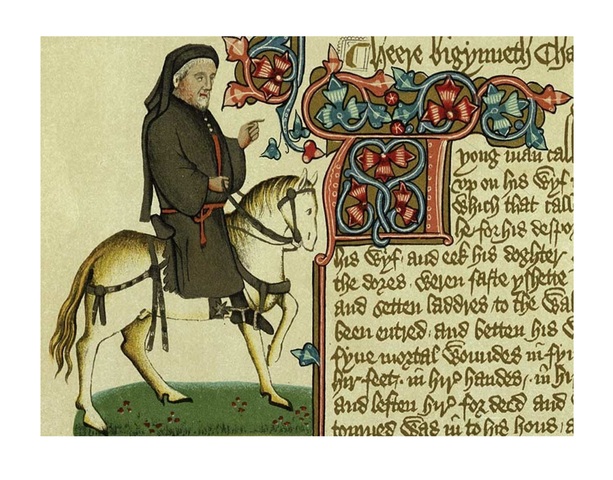 Heere bigynneth Cha
A
yong man call
vp on his Wyf
Which that call
he for his despo
his Wyf and eek his doghter
the dores weren faste yshette
and setten laddres to the Wal
been entred and betten his W
fyue mortal Woundes in syn
hir feet in hir handes in hi
and leften hir for deed and
torned Was in to his hous a